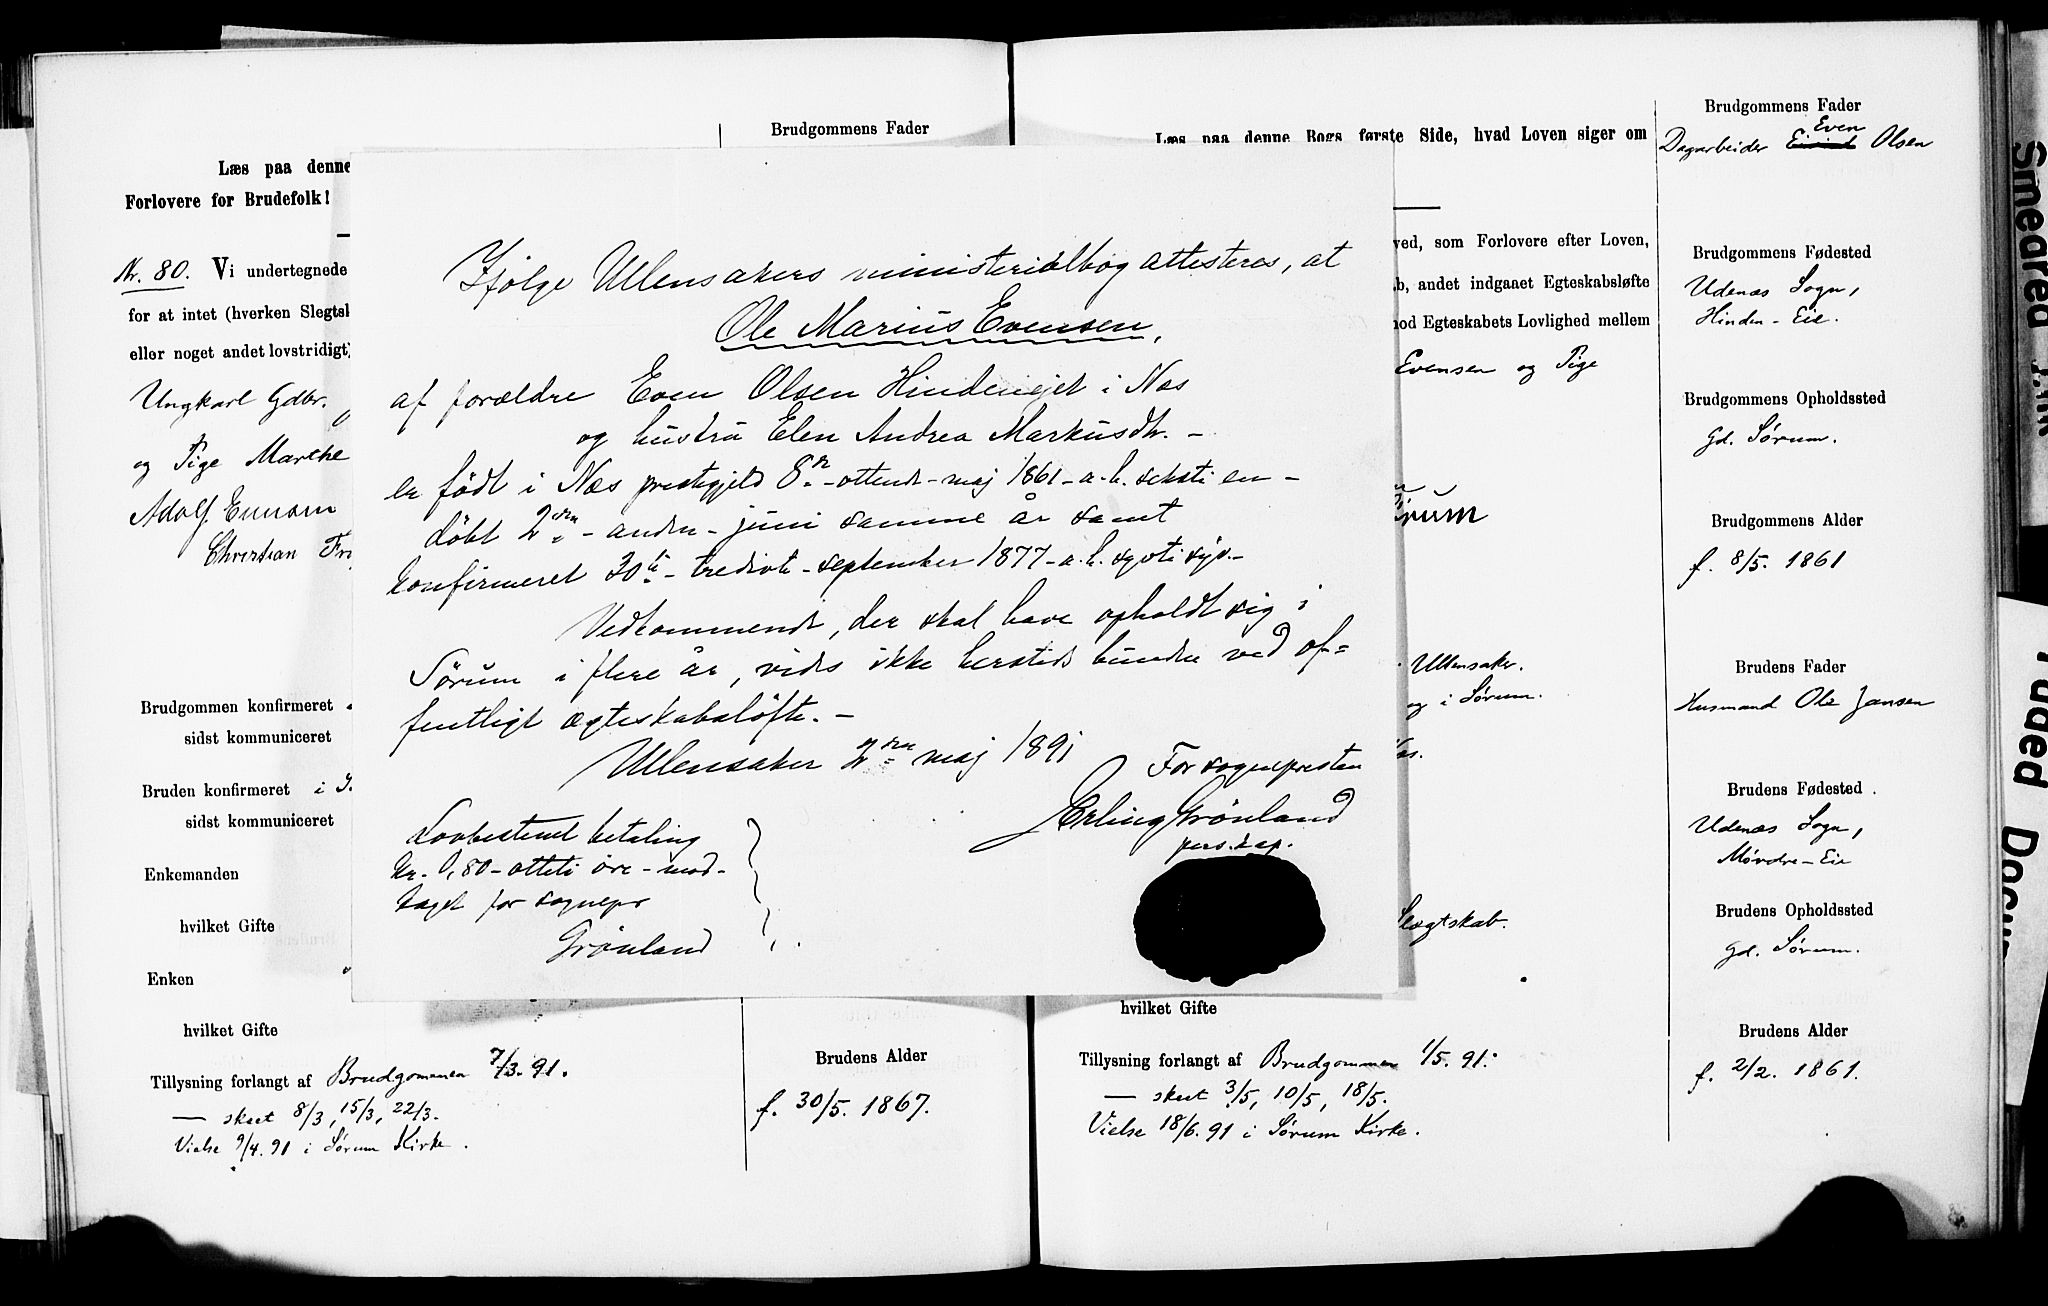 Brudgommens Fader
Læs paa denne
Forlovere for Brudefolk!
Nr. 80. Vi undertegnede
for at intet (hverken Slegtsk
eller noget andet lovstridigt)
Ungkarl Gdbr.
og Pige Marthe
Adolf
Christian
Brudgommen konfirmeret
sidst kommuniceret
Bruden konfirmeret i
sidst kommuniceret
Enkemanden
hvilket Gifte
Enken
hvilket Gifte
Tillysning forlangt af Brudgommen 7/3. 91.
— skeet 8/3, 15/3, 22/3.
Vielse 9/4. 91 i Sørum Kirke.
Brudens Alder
f. 30/5. 1867.
Ifølge Ullensakers ministerialbog attesteres, at
Ole Marius Evensen,
af forældre Even Olsen Hindeneiet i Næs
og hustru Elen Andrea Markusdtr. –
er født i Næs prestegjeld 8de – ottende – maj 1861 – a.h. seksti en –
døbt 2den – anden – juni samme år samt
konfirmeret 30te – tredivte – september 1877 – a.h. sytti syv. –
Vedkommende, der skal have opholdt sig i
Sørum i flere år, vides ikke hersteds bunden ved of=
fentligt ægteskabsløfte. –
Ullensaker 2den maj 1891
For sognepresten
Erling Grönland
pers. kap.
Lovbestemt betaling
kr. 0,80 – otteti øre – mod-
taget for sognepr
Grönland
Læs paa denne Bogs første Side, hvad Loven siger om
ved, som Forlovere efter Loven,
b, andet indgaaet Egteskabsløfte
mod Egteskabets Lovlighed mellem
Evensen og Pige
ørum
Ullensaker.
og i Sørum.
Slægtskab.
hvilket Gifte
Tillysning forlangt af Brudgommen 1/5. 91.
— skeet 3/5, 10/5, 18/5.
Vielse 18/6. 91 i Sørum Kirke.
Brudgommens Fader
Even
Dagarbeider Eivind Olsen
Brudgommens Fødested
Udenæs Sogn,
Hinden-Eie.
Brudgommens Opholdssted
Gd. Sørum.
Brudgommens Alder
f. 8/5. 1861
Brudens Fader
Husmand Ole Jansen
Brudens Fødested.
Udenæs Sogn,
Møvdre-Eie
Brudens Opholdssted
Gd. Sørum.
Brudens Alder
f. 2/2. 1861.